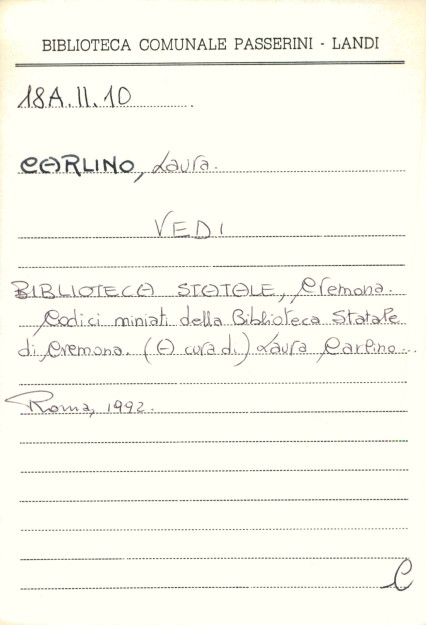 BIBLIOTECA COMUNALE PASSERINI - LANDI
18A.II.10
CARLINO, Laura.
VEDI
BIBLIOTECA STATALE, Cremona.
Codici miniati della Biblioteca Statale
di Cremona. (A cura di) Laura Carlino...
Roma, 1992.
C